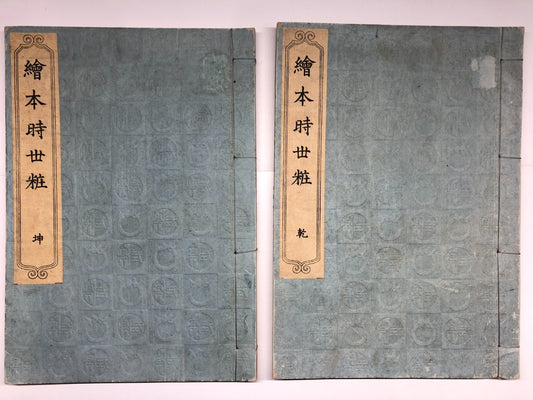 繪本時世粧 坤
繪本時世粧 乾